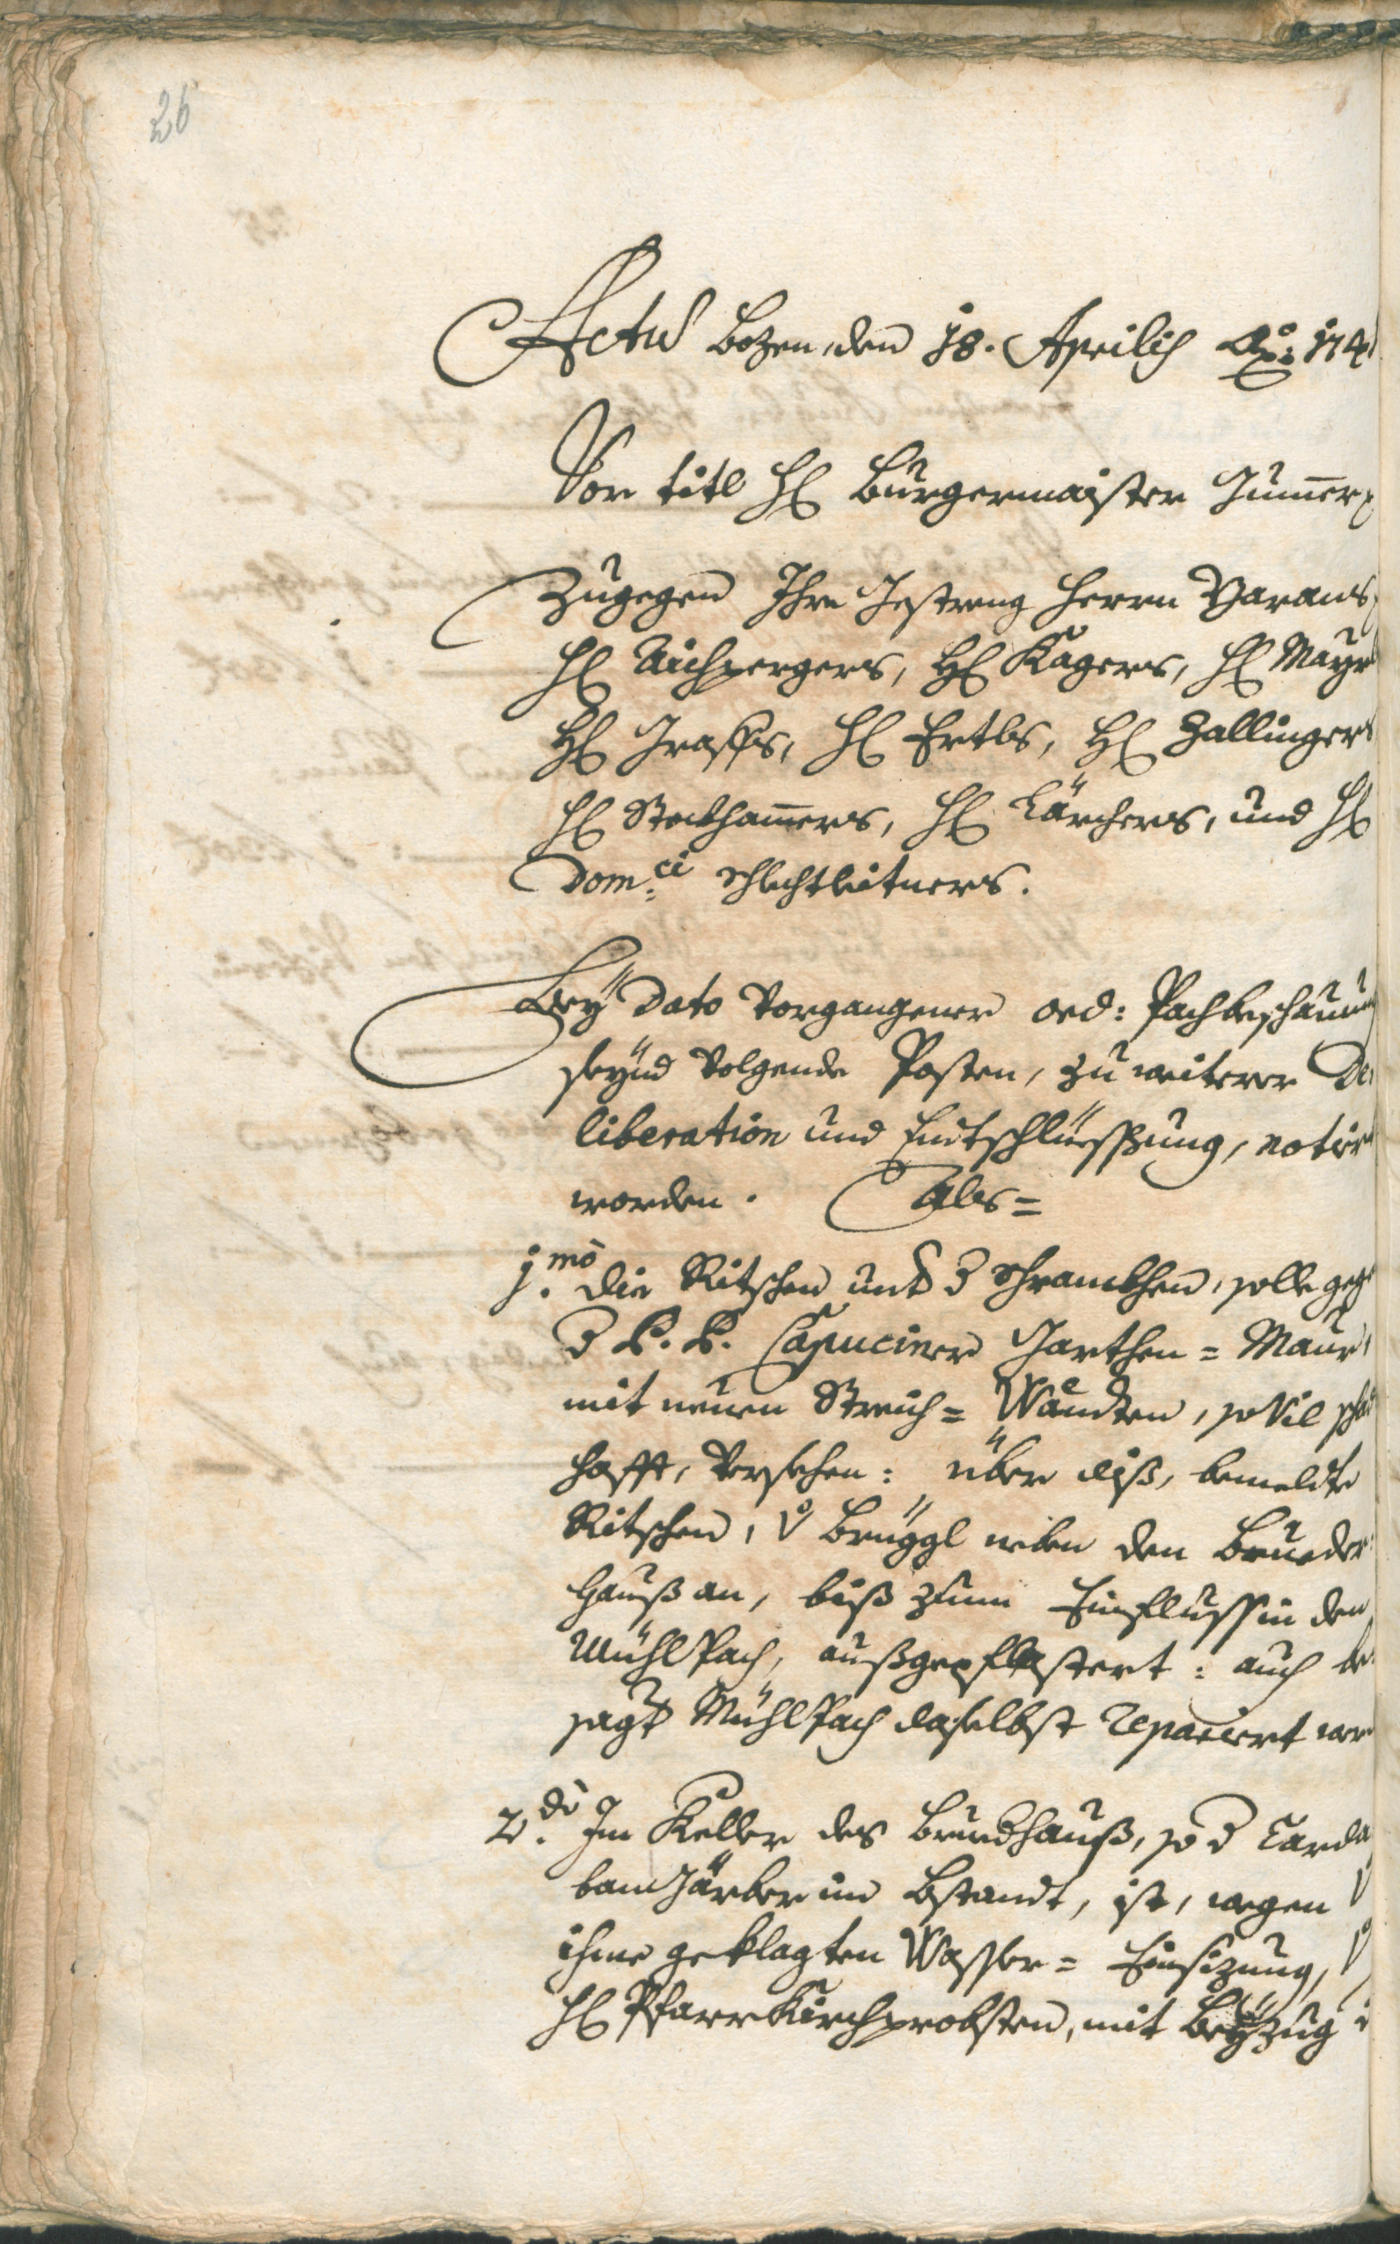 26
Actum Bozen, den 18. Aprilis Ao: 174
Vor titl H: Burgermaister Gumer
Zugegen Ihro Gestreng Herrn Zarans,
H: Aichpergers, H: Kagers, H: Mayr
H: Graffs, H: Ertls, H: Zallingers
H: Stockhamers, H: Kärchers, und H:
Dom:ci Schlechtleitners.
Bey dato vorgangener ord: Pachbeschauung
seynd volgende Posten, zu weiterer De¬
liberation und Entschlüessung, notirt
worden. Als=
1.mo Die Ritschen unter der Schrambhen, solle geg
der P. P. Capuciner Garthen= Maur,
mit neuen Streich= Wändten, so vil schad
hafft, versehen: über diß, bemeldte
Ritschen, v: Brüggl neben den Brueder
Hauß an, biß zum Einfluss in den
Mühlpach, außgepflastert: auch be¬
sagter Mühlpach daselbst reparirt wer
2.do Im Keller des Bruederhauß, so der Carda
ban Färber im Bstandt, ist, wegen v:
ihme geklagten Wasser= Einsizung, v:
H: Pfarrkirchprobsten, mit Beyzug